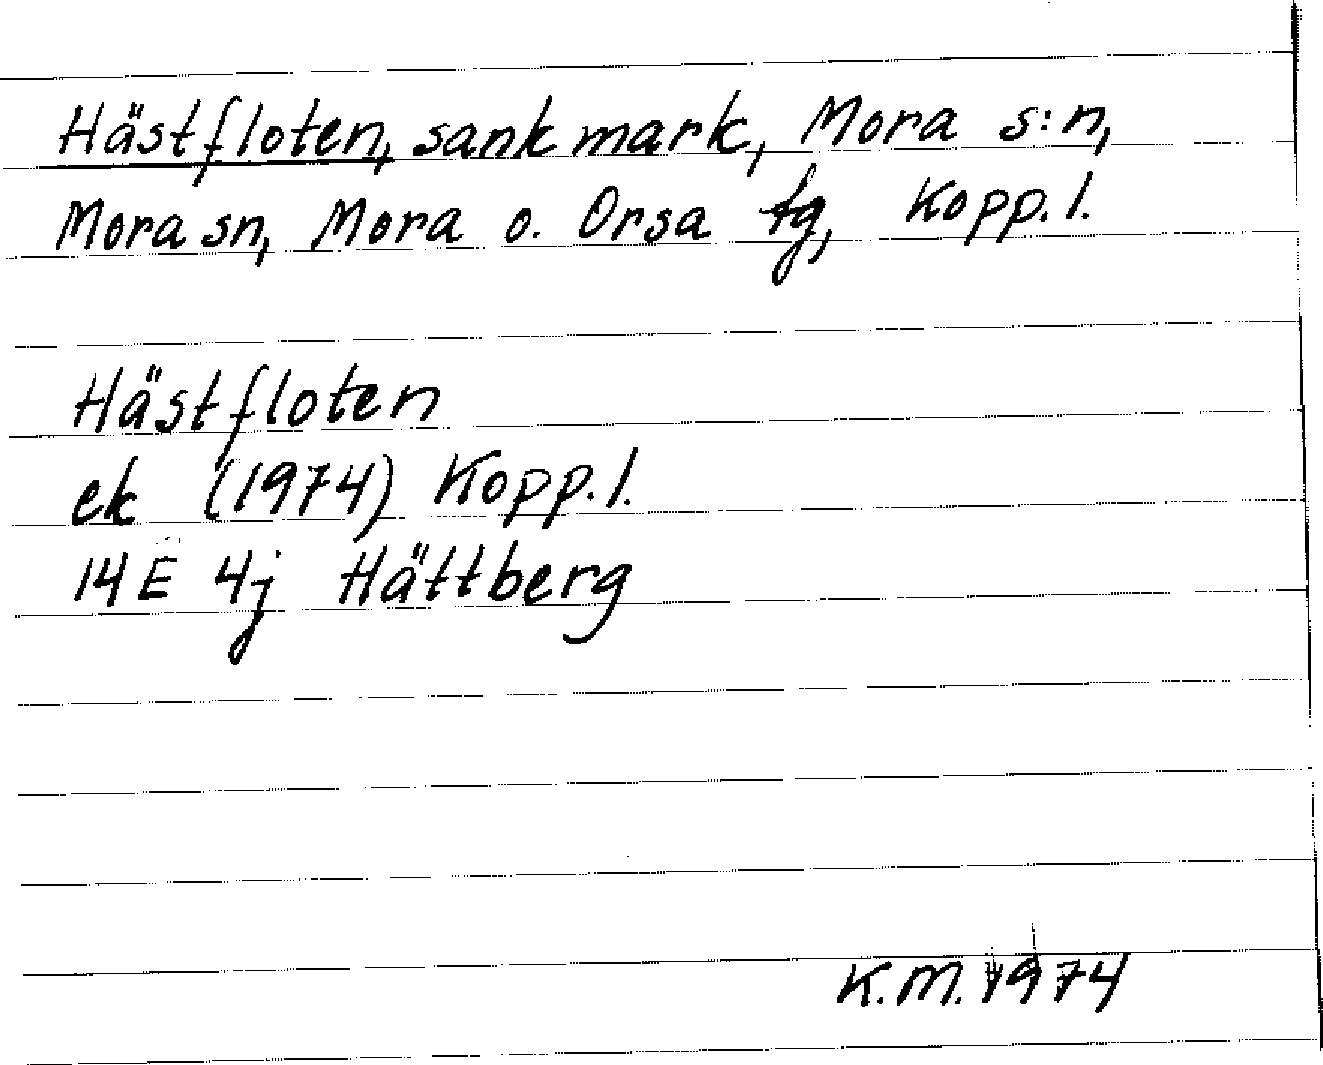 Hästfloten, sank mark, Mora s:n,
Mora sn, Mora o. Orsa tg, Kopp. l.
Hästfloten
ek (1974) Kopp. l.
14E 4j Hättberg
K.M. 1974